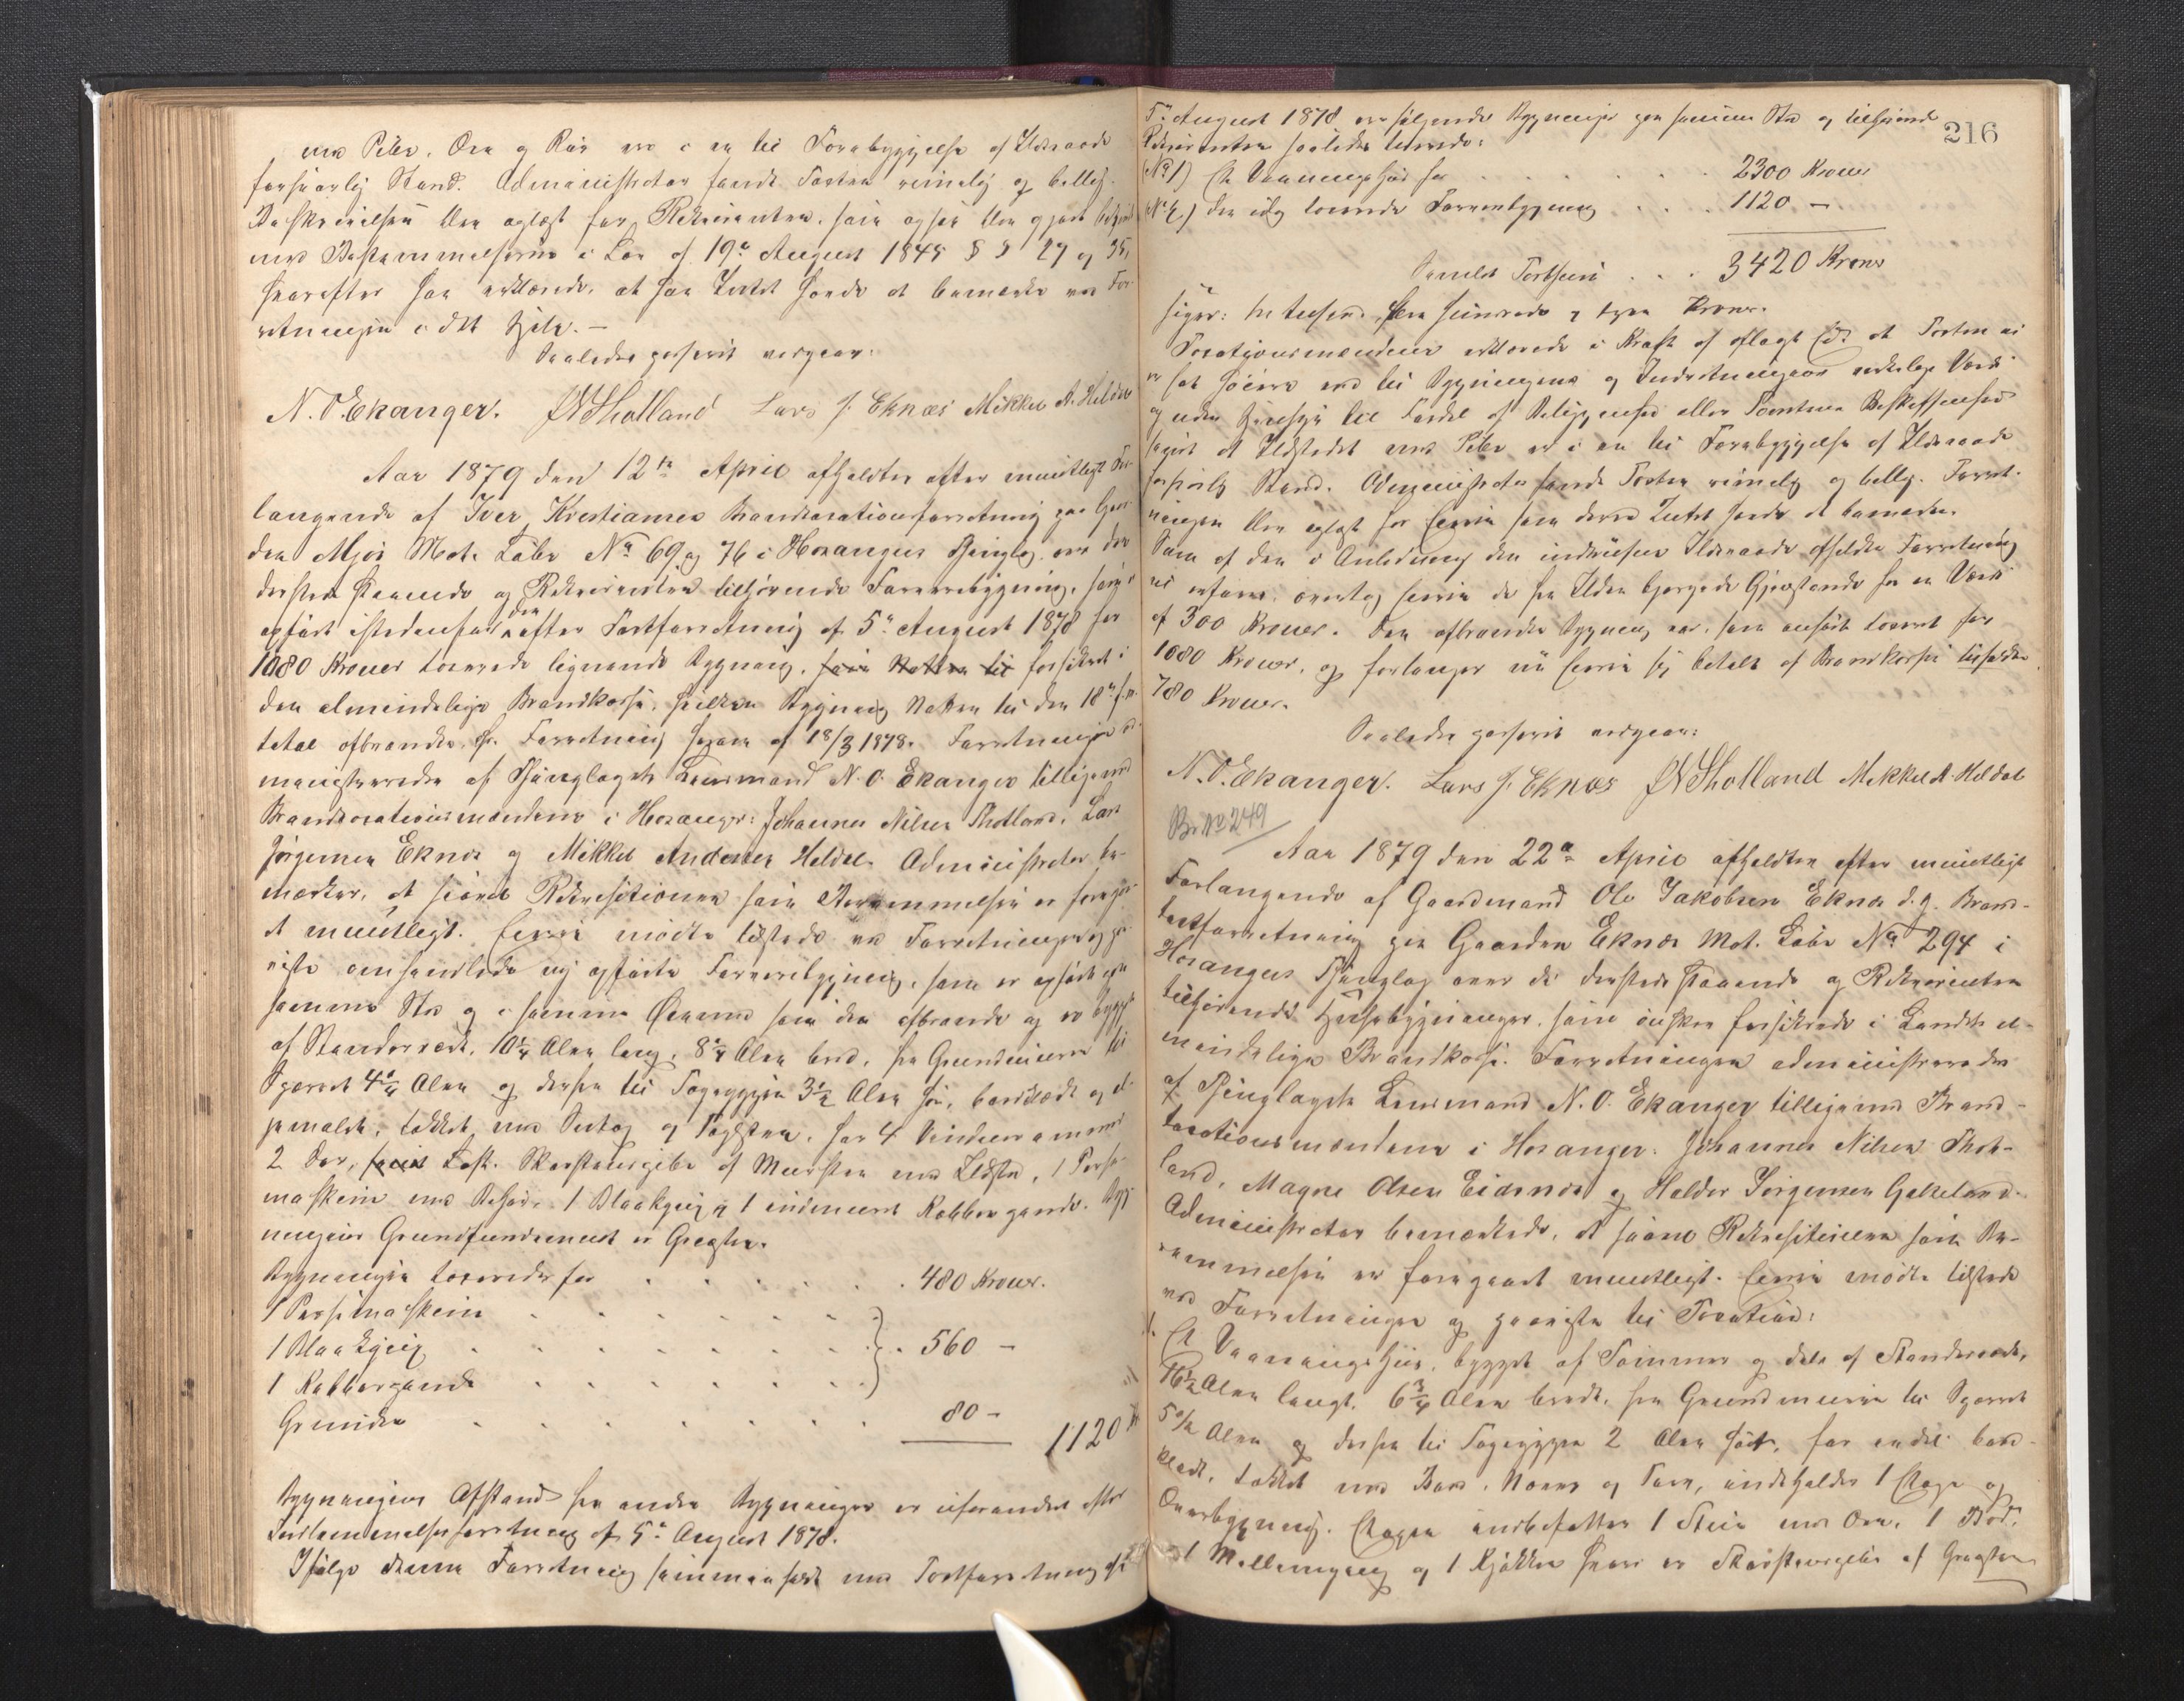 med Pibe, Ovn og Rør ere i en til Forebyggelse af Ildsvaade
forsvarlig Stand. Administrator fandt Taxten rimelig og billig.
Beskrivelsen blev oplæst for Rekvirenten, som ogsaa blev gjort bekjendt
med Bestemmelserne i Lov af 19de August 1845 §§ 27 og 35,
hvorefter han erklærede, at han Intet havde at bemærke ved For-
retningen i det Hele. —
Saaledes passeret vidgaar:
N. O. Ekanger. J N Thotland Lars J. Eknæs Mikkel A. Heldal
Aar 1879 den 12te April afholdtes efter mundtligt For-
langende af Iver Kristiansen Brandtaxationsforretning paa Gaar-
den Mjøs Mat. Løbe No 69 og 76 i Hosangers Thinglag over den
dersteds staaende og Rekvirenten tilhørende Farveribygning, som er
opført istedenfor den efter Taxtforretning af 5te August 1878 for
1080 Kroner taxerede lignende Bygning, som Natten til forsikret i
den almindelige Brandkasse, hvilken Bygning Natten til den 18de f. M.
total afbrændte, jfr. Forretning herom af 18/3 1878. Forretningen ad-
ministreredes af Thinglagets Lensmand N. O. Ekanger tilligemed
Brandtaxationsmændene i Hosanger: Johannes Nilsen Thotland, Lars
Jørgensen Eknæs og Mikkel Andersen Heldal. Administrator be-
mærker, at saavel Rekvisitionen som Berammelsen er foregaa-
et mundtligt. Eieren mødte tilstede ved Forretningen og paa-
viste omhandlede ny opførte Farveribygning, som er opført paa
samme Sted og i samme Øiemed som den afbrændte og er bygget
af Standerværk, 10 1/4 Alen lang, 8 1/4 Alen bred, fra Grundmuren til
Sperret 4 1/4 Alen og derfra til Tagryggen 3 1/2 Alen høi, bordklædt og
malet, tækket med Sutag og Tagsten, har 4 Vinduesrammer
2 Dør, Loft. Skorstenspibe af Mursten med Ildsted, 1 Perse-
maskin med Behør, 1 Blaakyp og 1 indmuret Kobbergande. Byg-
ningens Grundfundament er Graasten.
Bygningen taxeredes for . . . . . . 480 Kroner.
1 Persemaskin . . . . . . .
1 Blaakyp . . . . . . . } . 560 —
1 Kobbergande . . . . . . .
Grunden . . . . . . . 80 —
1120
Bygningens Afstand fra andre Bygninger er uforandret efter
Indlemmelsesforretning af 5te August 1878.
Ifølge denne Forretning sammenholdt med Taxtforretning af
216
5te August 1878 ere følgende Bygninger paa samme Sted og tilhørende
Rekvirenten saaledes taxerede:
No 1) Et Vaaningshus for . . . . . . . 2300 Kroner
No 2) Den idag taxerede Farveribygning . . . 1120 —
Samlet Taxtsum . . . 3420 Kroner
siger: tre tusend, fire hundrede og tyve Kroner.
Taxationsmændene erklærede i Kraft af aflagt Ed at Taxten ei
er sat høiere end til Bygningens og Indretningens virkelige Værdi
og uden Hensyn til Fordel af Beliggenhed eller Tomtens Beskaffenhed
samt at Ildstedet med Pibe er i en til Forebyggelse af Ildsvaade
forsvarlig Stand. Administrator fandt Taxten rimelig og billig. Forret-
ningen blev oplæst for Eieren som derved Intet havde at bemærke.
Som af den i Anledning den indtrufne Ildsvaade afholdte Forretning
vil erfares, overtog Eieren de fra Ilden bjergede Gjenstande for en Værdi
af 300 Kroner. Den afbrændte Bygning var, som anført taxeret for
1080 Kroner, og forlanger nu Eieren sig betalt af Brandkassen
780 Kroner.
Saaledes passeret vidgaar:
N. O. Ekanger. Lars J. Eknæs J N Thotland Mikkel A. Heldal
Br No 249
Aar 1879 den 22de April afholdtes efter mundtligt
Forlangende af Gaardmand Ole Jakobsen Eknæs d. y. Brand-
taxtforretning paa Gaarden Eknæs Mat. Løbe No 294 i
Hosangers Thinglag over de dersteds staaende og Rekvirenten
tilhørende Husebygninger, som ønskes forsikrede i Landets al-
mindelige Brandkasse. Forretningen administreredes
af Thinglagets Lensmand N. O. Ekanger tilligemed Brand-
taxationsmændene i Hosanger: Johannes Nilsen Thot-
land, Magne Olsen Eidsnæs og Haldor Jørgensen Hakeland.
Administrator bemærkede, at saavel Rekvisitionen som Be-
rammelsen er foregaaet mundtligt. Eieren mødte tilstede
ved Forretningen og paaviste til Taxation:
1. Et Vaaningshus, bygget af Tømmer og dels af Standerværk,
16 1/2 Alen langt, 6 3/4 Alen bredt, fra Grundmuren til Sperret
5 1/2 Alen og derfra til Tagryggen 2 Alen høit, for endel bord-
klædt, tækket med Bord, Næver og Torv, indeholder 1 Etage og
Overbygning. Etagen indbefatter 1 Stue med Ovn, 1 Bod,
1 Mellemgang og 1 Kjøkken hvori er Skorstenspibe af Graasten